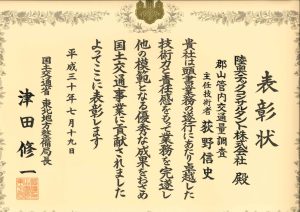 表彰状
陸奥テックコンサルタント株式会社 殿
郡山管内交通量調査
主任技術者 荻野信史
貴社は頭書業務の遂行にあたり卓越した
技術力と責任感をもって業務を完遂し
他の模範となる優秀な成果をおさめ
国土交通事業に貢献されました
よってここに表彰します
平成三十年七月十九日
国土交通省 東北地方整備局長
津田修一